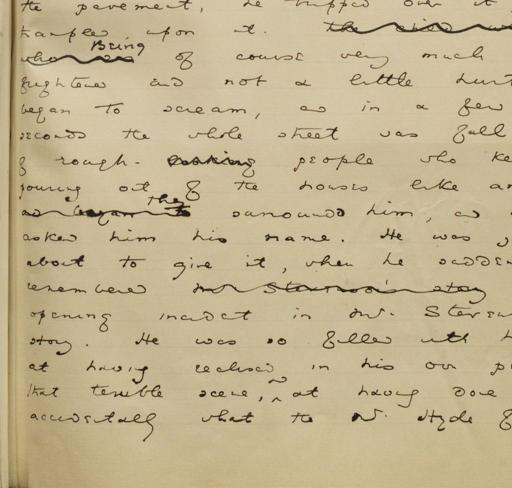 the pavement, he tripped over it
trampled upon it. the child w
Being
who was of course very much
frightened and not a little hurt
began to scream, and in a few
seconds the whole street was full
of rough- looking people who ke
pouring out of the houses like an
they
as began to surround him, and
asked him his name. He was j
about to give it, when he sudden
remembered Mr Stevenson's story
opening incident in Mr. Stevens
story. He was so filled with h
at having realised in his own p
that terrible scene, at having done
accidentally what the Mr. Hyde of